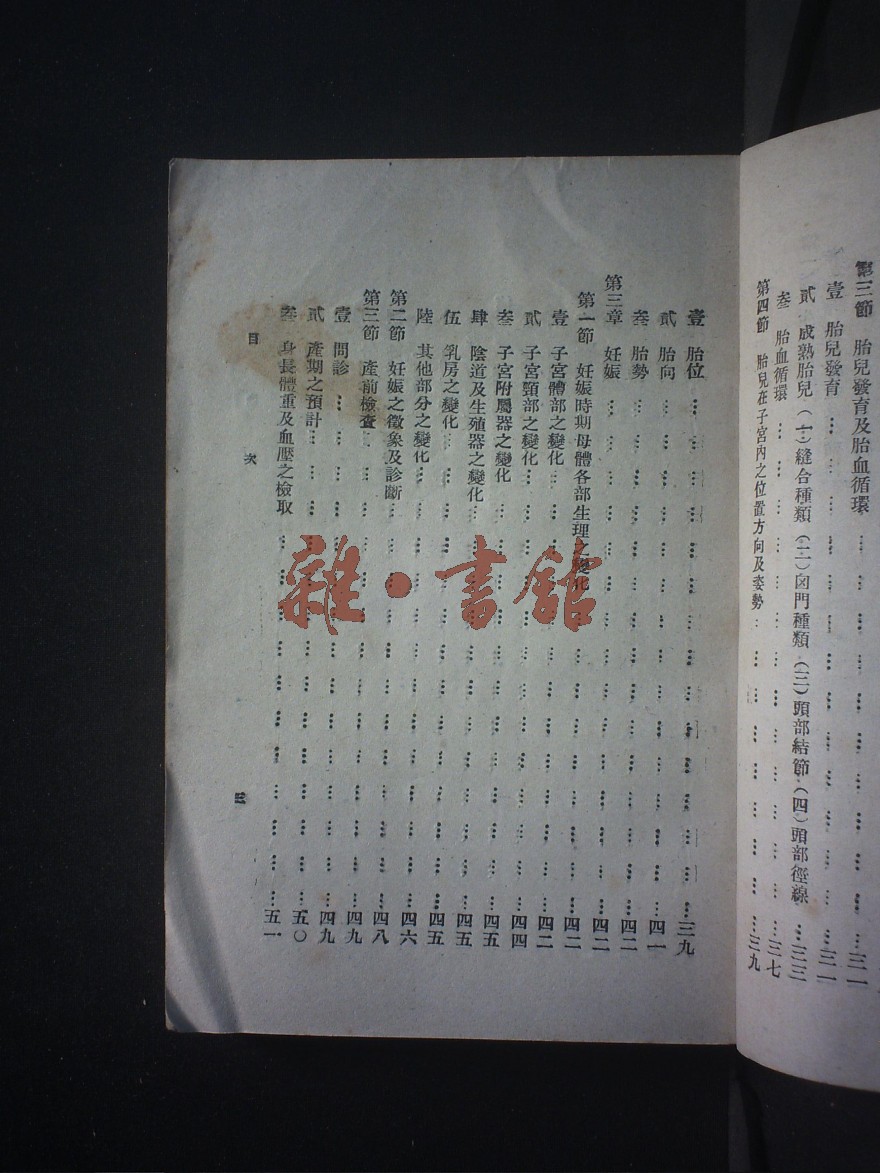 第三節　胎兒發育及胎血循環…三一
壹　胎兒發育…三一
貳　成熟胎兒（一）縫合種類（二）囟門種類（三）頭部結節（四）頭部徑線…三三
叁　胎血循環…三七
第四節　胎兒在子宮內之位置方向及姿勢…三九
壹　胎位…三九
貳　胎向…四一
叁　胎勢…四二
第三章　妊娠…四二
第一節　妊娠時期母體各部生理之變化…四二
壹　子宮體部之變化…四二
貳　子宮頸部之變化…四四
叁　子宮附屬器之變化…四五
肆　陰道及生殖器之變化…四五
伍　乳房之變化…四五
陸　其他部分之變化…四六
第二節　妊娠之徵象及診斷…四八
第三節　產前檢查…四九
壹　問診…四九
貳　產期之預計…五〇
叁　身長體重及血壓之檢取…五一
目次
三
雜·書館